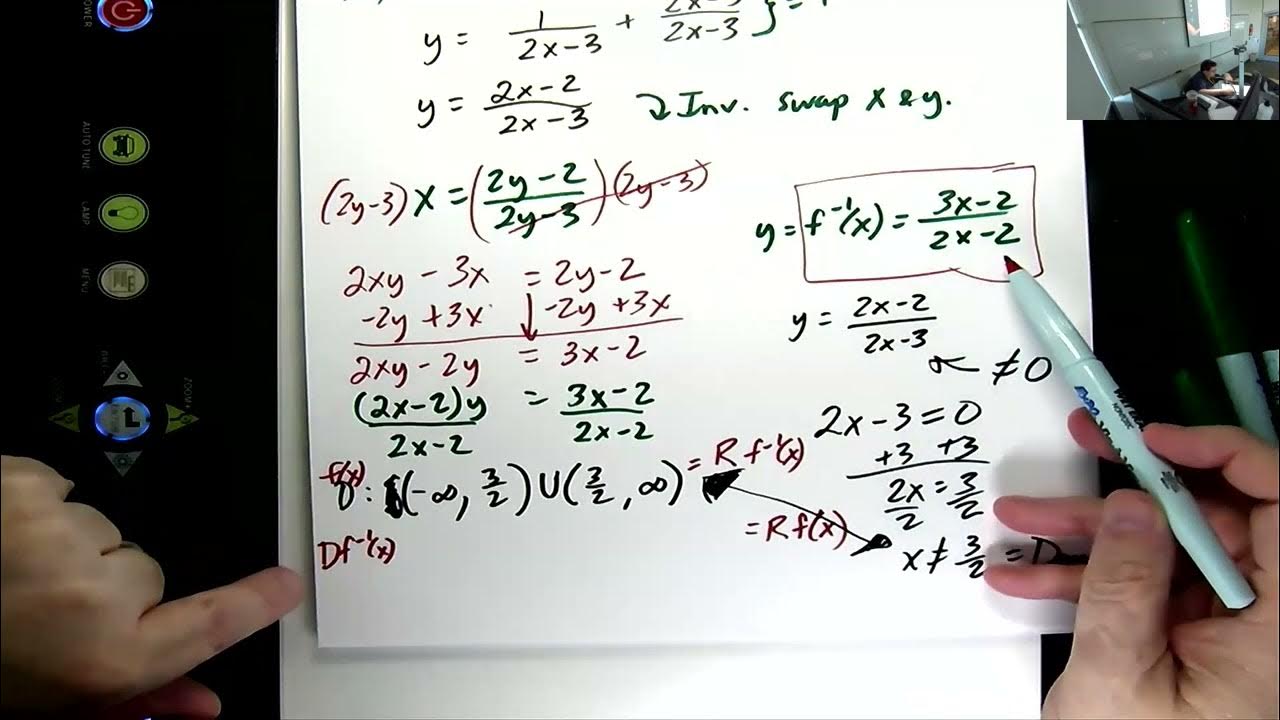 POWER
AUTO TUNE
LAMP
MENU
ZOOM+
y = 1/(2x-3) + (2x-3)/(2x-3)
y = (2x-2)/(2x-3) Inv. swap x & y.
(2y-3) x = ((2y-2)/(2y-3)) (2y-3)
2xy - 3x = 2y - 2
-2y + 3x -2y + 3x
2xy - 2y = 3x - 2
(2x-2)y/(2x-2) = (3x-2)/(2x-2)
f(x)
D: (-∞, 3/2) U (3/2, ∞) = R f⁻¹(x)
D f⁻¹(x) = R f(x)
y = f⁻¹(x) = (3x-2)/(2x-2)
y = (2x-2)/(2x-3)
← ≠ 0
2x - 3 = 0
+3 +3
2x/2 = 3/2
x ≠ 3/2 = D